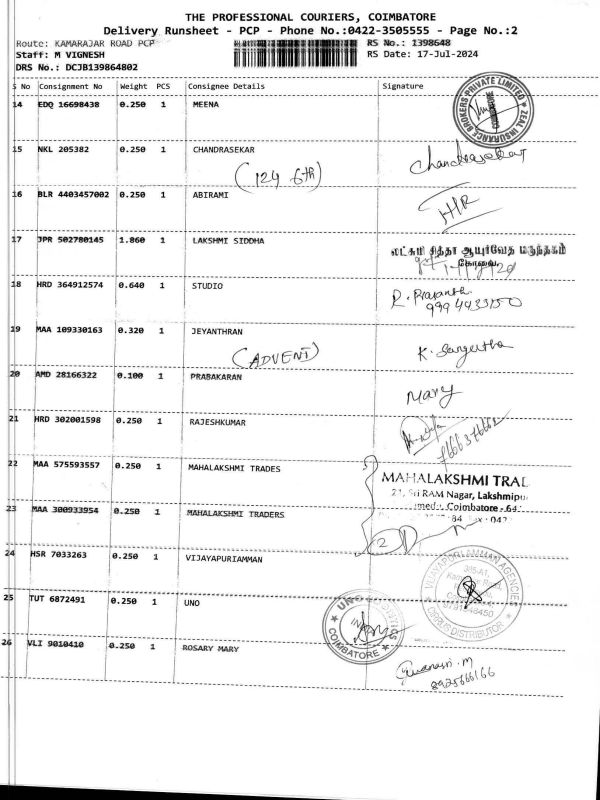 THE PROFESSIONAL COURIERS, COIMBATORE
Delivery Runsheet - PCP - Phone No.:0422-3505555 - Page No.:2
Route: KAMARAJAR ROAD PCP RS No.: 1398648
Staff: M VIGNESH RS Date: 17-Jul-2024
DRS No.: DCJB139864802
S No Consignment No Weight PCS Consignee Details Signature
14 EDQ 16698438 0.250 1 MEENA
ZEAL INSURANCE BROKERS PRIVATE LIMITED
15 NKL 205382 0.250 1 CHANDRASEKAR Chandrasekar
(124 6th)
16 BLR 4403457002 0.250 1 ABIRAMI HR
17 JPR 502780145 1.860 1 LAKSHMI SIDDHA லட்சுமி சித்தா ஆயுர்வேத மருந்தகம்
கோவை
18 HRD 364912574 0.640 1 STUDIO R. Prasanth
9994433150
19 MAA 109330163 0.320 1 JEYANTHRAN K. Sangeetha
(ADVENT)
20 AMD 28166322 0.100 1 PRABAKARAN Mary
21 HRD 302001598 0.250 1 RAJESHKUMAR
22 MAA 575593557 0.250 1 MAHALAKSHMI TRADES MAHALAKSHMI TRAD
21, Sri RAM Nagar, Lakshmipu
23 MAA 300933954 0.250 1 MAHALAKSHMI TRADERS Coimbatore - 64
2
24 HSR 7033263 0.250 1 VIJAYAPURIAMMAN
VIJAYAPURI AMMAN AGENCIES
DISTRIBUTOR
25 TUT 6872491 0.250 1 UNO
UNO
COIMBATORE
26 VLI 9010410 0.250 1 ROSARY MARY
8925666166